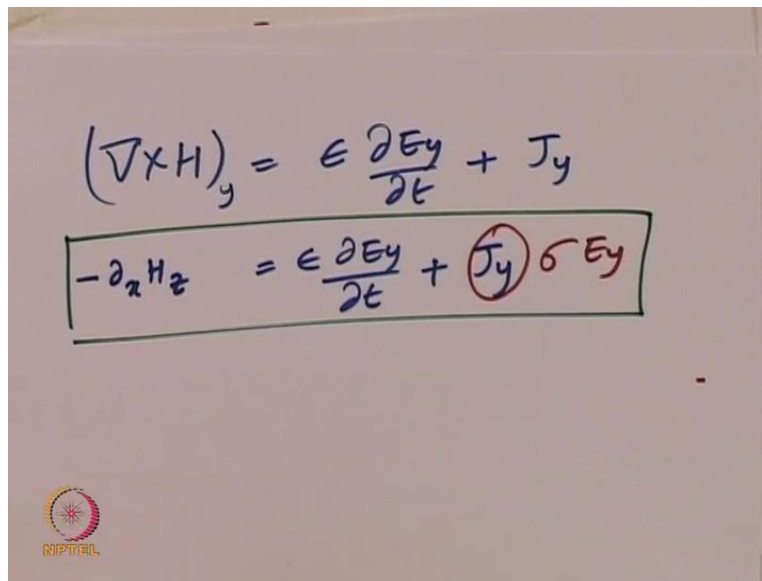 (∇×H)_y = ϵ ∂Ey/∂t + Jy
-∂_x H_z = ϵ ∂Ey/∂t + Jy σ Ey
NPTEL